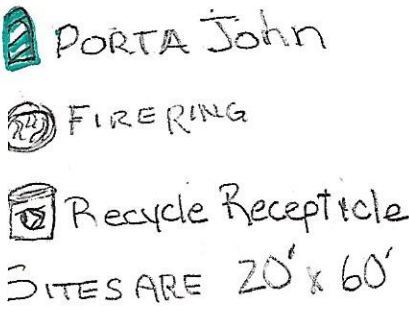 PORTA John
FIRE RING
Recycle Recepticle
SITES ARE 20' x 60'